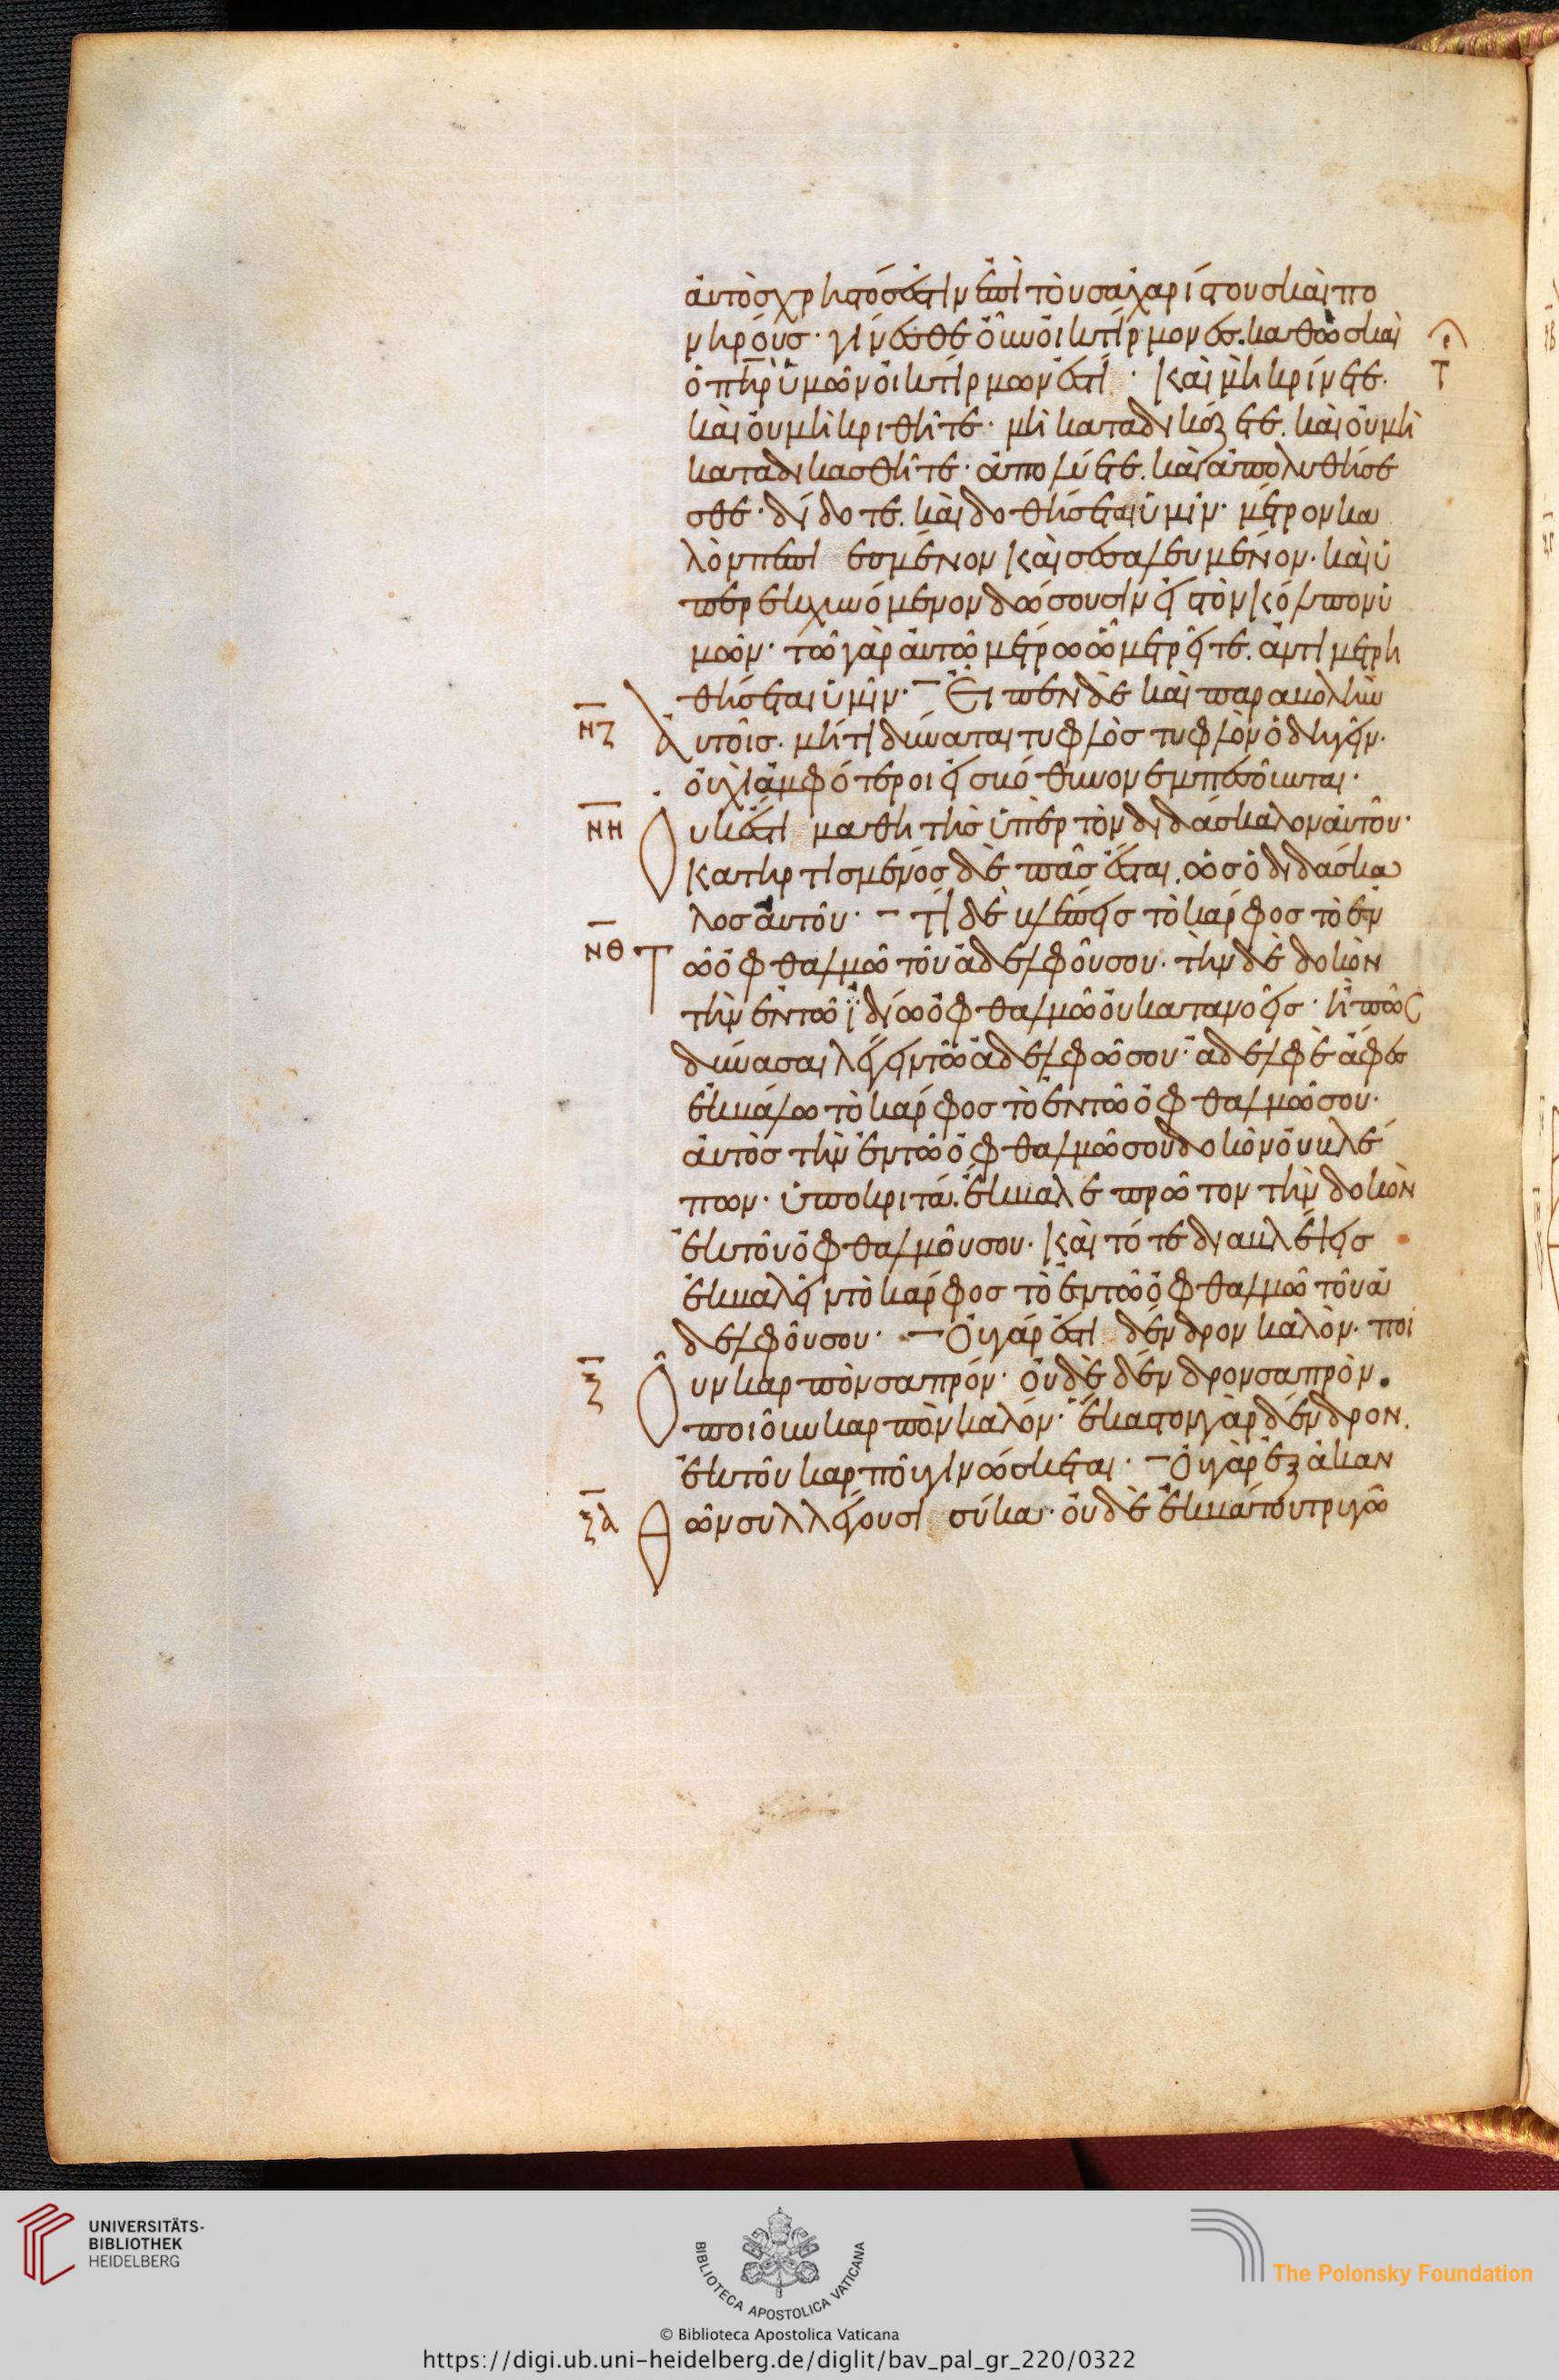 αὐτὸς χρηστός ἐστιν ἐπὶ τοὺς ἀχαρίστους καὶ πο
νηρούς· γίνεσθε οὖν οἰκτίρμονες. καθὼς καὶ
ὁ πη̅ρ ὑμῶν οἰκτίρμων ἐστί· Καὶ μὴ κρίνετε.
καὶ οὐ μὴ κριθῆτε· μὴ καταδικάζετε. καὶ οὐ μὴ
καταδικασθῆτε· ἀπολύετε. καὶ ἀπολυθήσε
σθε· δίδοτε. καὶ δοθήσεται ὑμῖν· μέτρον κα
λὸν πεπιεσμένον καὶ σεσαλευμένον. καὶ ὑ
περεκχυνόμενον δώσουσιν εἰς τὸν κόλπον ὑ
μῶν· τῶ γὰρ αὐτῶ μέτρω ὧ μετρεῖτε. ἀντιμετρη
θήσεται ὑμῖν· Εἶπεν δὲ καὶ παραβολὴν
ΝΖ αὐτοῖς. μήτι δύναται τυφλὸς τυφλὸν ὁδηγεῖν.
οὐχὶ ἀμφότεροι εἰς βόθυνον ἐμπεσοῦνται·
ΝΗ Οὐκ ἔστι μαθητὴς ὑπὲρ τὸν διδάσκαλον αὐτοῦ·
κατηρτισμένος δὲ πᾶς ἔσται. ὡς ὁ διδάσκα
λος αὐτοῦ· τί δὲ βλέπεις τὸ κάρφος τὸ ἐν
ΝΘ Τῶ ὀφθαλμῶ τοῦ ἀδελφοῦ σου. τὴν δὲ δοκὸν
τὴν ἐν τῶ ἰδίω ὀφθαλμῶ οὐ κατανοεῖς· ἢ πῶς
δύνασαι λέγειν τῶ ἀδελφῶ σου· ἀδελφὲ ἄφες
ἐκβάλω τὸ κάρφος τὸ ἐν τῶ ὀφθαλμῶ σου·
αὐτὸς τὴν ἐν τῶ ὀφθαλμῶ σου δοκὸν οὐ βλέ
πων. ὑποκριτά. ἔκβαλε πρῶτον τὴν δοκὸν
ἐκ τοῦ ὀφθαλμοῦ σου. καὶ τότε διαβλέψεις
ἐκβαλεῖν τὸ κάρφος τὸ ἐν τῶ ὀφθαλμῶ τοῦ ἀ
δελφοῦ σου· Οὐ γάρ ἐστι δένδρον καλὸν. ποι
Ξ Οῦν καρπὸν σαπρόν· οὐδὲ δένδρον σαπρὸν.
ποιοῦν καρπὸν καλόν· ἕκαστον γὰρ δένδρον.
ἐκ τοῦ καρποῦ γινώσκεται· Οὐ γὰρ ἐξ ἀκαν
ΞΑ Θῶν συλλέγουσι σύκα· οὐδὲ ἐκ βάτου τρυγῶ
Τ
UNIVERSITÄTS-
BIBLIOTHEK
HEIDELBERG
BIBLIOTECA APOSTOLICA VATICANA
The Polonsky Foundation
© Biblioteca Apostolica Vaticana
https://digi.ub.uni-heidelberg.de/diglit/bav_pal_gr_220/0322